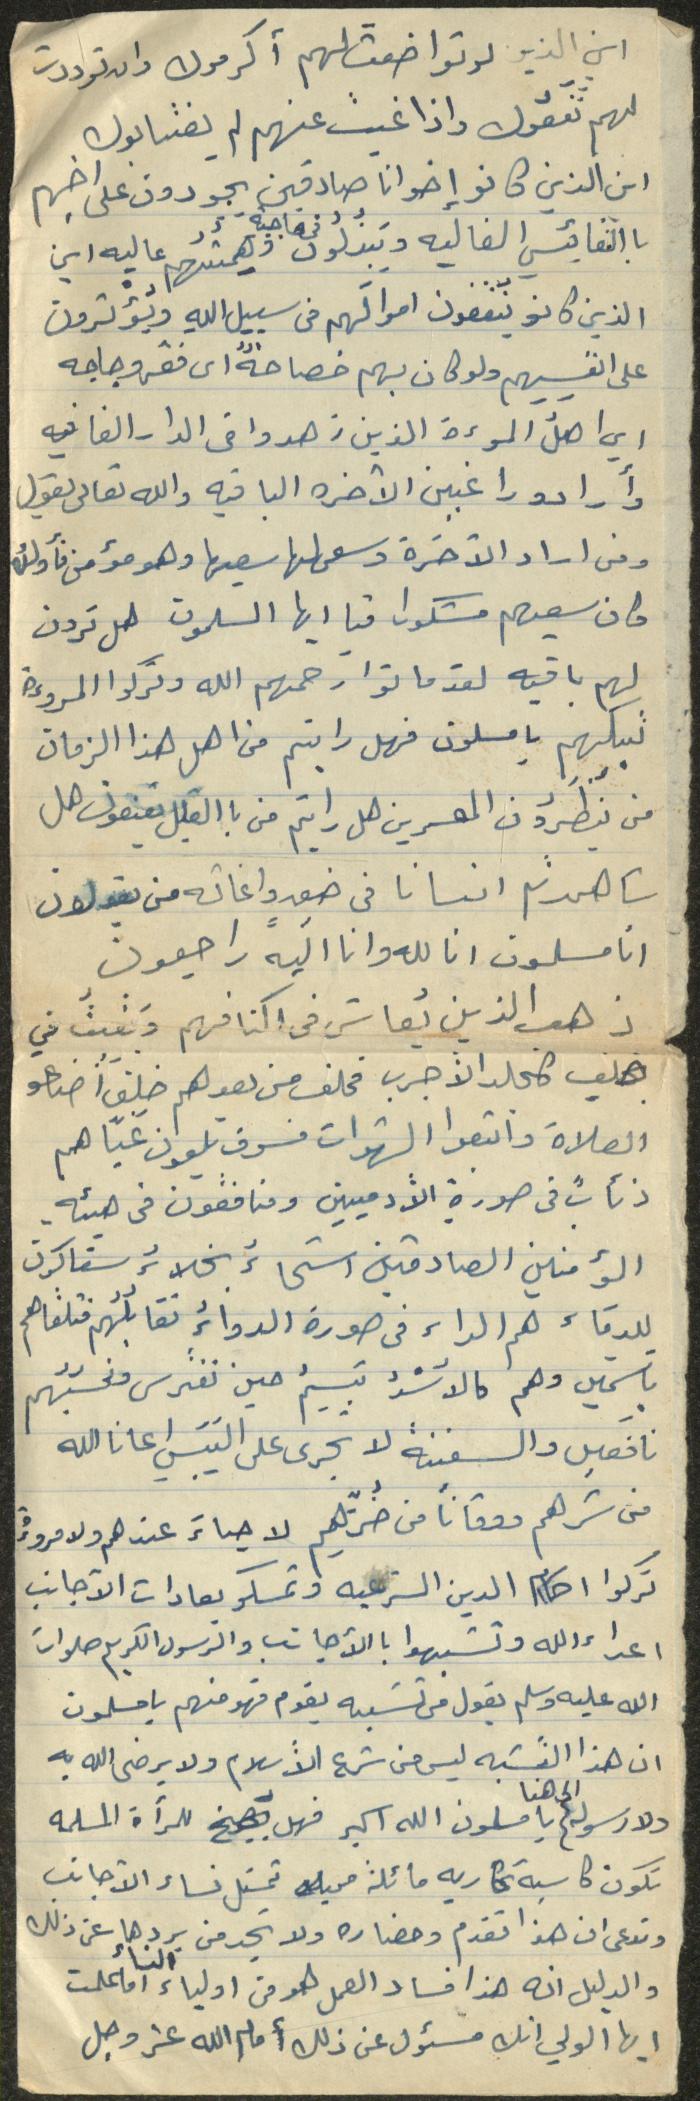 اين الذين لو تواضعت لهم أكرموك وان توددت
لهم نفعوك واذا غبت عنهم لم يغتابوك
اين الذين كانو إخوانا صادقين يجودون على اخيهم
باالنفائس الغاليه ويبذلون في حاجته وهمتهم عاليه اين
الذين كانو ينفقون اموالهم في سبيل الله ويؤثرون
على انفسهم ولو كان بهم خصاصةٌ اى فقر وحاجه
اين اهل المروءة الذين زهدوا في الدار الفانيه
وأرادو راغبين الآخره الباقيه والله تعالى يقول
ومن اراد الآخرة وسعى لها سعيها وهو مؤمن فأولئك
كان سعيهم مشكورا فيا ايها المسلمون هل ترون
لهم باقيه لقد ماتوا رحمهم الله وتركوا المروءة
تبكيهم يا مسلمون فهل رايتم من اهل هذا الزمان
من ينظرون المعسرين هل رايتم من باالقليل يقنعون هل
شاهدتم انسانا في ضعف واغاثه من يقولون
انا مسلمون انا لله وانا اليه راجعون
ذهب الذين يُعاش في اكنافهم وبقيتُ في
خلف كجلد الأجرب فخلف من بعدهم خلفٌ أضاعو
الصلاة واتبعوا الشهوات فسوف يلقون غيّا هم
ذئابٌ في صورة الآدميين ومنافقون في هيئه
المؤمنين الصادقين اشحاءُ بخلاءُ سفاكون
للدماء هم الداء في صورة الدواءُ تقابلُهم فتلقاهم
باسمين وهم كالأسدُ يبسمُ حين تفترس وتحسبُهم
نافعين والسفينةُ لا تجرى على اليَبَس اعانا الله
من شرهم ووقانا من ضُرّهم لا حياءَ عندهم ولا مروءةٌ
تركوا احكام الدين الشرعيه وتمسكو بعادات الآجانب
اعداء الله وتشبهوا باالأجانب والرسول الكريم صلوات
الله عليه وسلم يقول من تشبه بقوم فهو منهم يا مسلمون
ان هذا التشبه ليس من شرع الأسلام ولا يرضى الله به
ولا رسوله الى هنا يا مسلمون الله اكبر فهل يصح للمرأة المسلمه
تكون كاسية عاريه مائلةً مميله تمثل نساء الآجانب
وتدعى ان هذا تقدم وحضاره ولا تجد من يردها عن ذلك
والدليل انه هذا فساد العمل هو من اولياء النساءُ اما علمت
ايها الولي انك مسئول عن ذلك أمام الله عز وجل